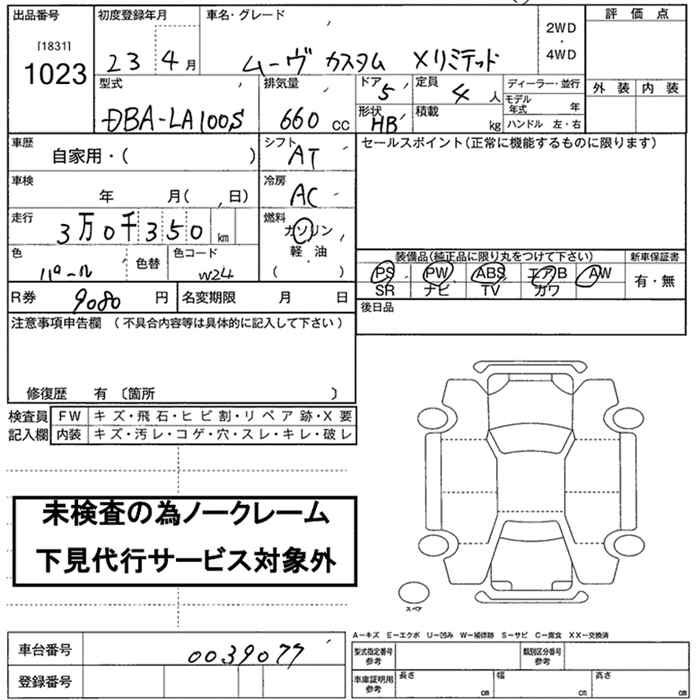 出品番号 初度登録年月 車名・グレード 2WD・4WD 評価点
[1831] 1023 23 4月 ムーヴ カスタム Xリミテッド
外装 内装
型式 排気量 ドア 5 定員 4人 ディーラー・並行
DBA-LA100S 660 CC 形状 HB 積載 kg モデル年式 年
ハンドル 左・右
車歴 自家用・( ) シフト AT セールスポイント(正常に機能するものに限ります)
車検 年 月( 、日) 冷房 AC
走行 3万0千350 km 燃料 ガソリン
軽・油
( )
色 パール 色替 色コード W24
装備品(純正品に限り丸をつけて下さい) 新車保証書
PS PW ABS エアB AW 有・無
SR ナビ TV カワ
R券 9080 円 名変期限 月 日 後日品
注意事項申告欄 (不具合内容等は具体的に記入して下さい)
修復歴 有 〔箇所 〕
検査員 FW キズ・飛石・ヒビ割・リペア跡・X要
記入欄 内装 キズ・汚レ・コゲ・穴・スレ・キレ・破レ
未検査の為ノークレーム
下見代行サービス対象外
スペア
A−キズ E−エクボ U−凹み W−補修跡 S−サビ C−腐食 XX−交換済
車台番号 0039077 型式指定番号 参考 類別区分番号 参考
登録番号 車庫証明用 参考 長さ cm 幅 cm 高さ cm